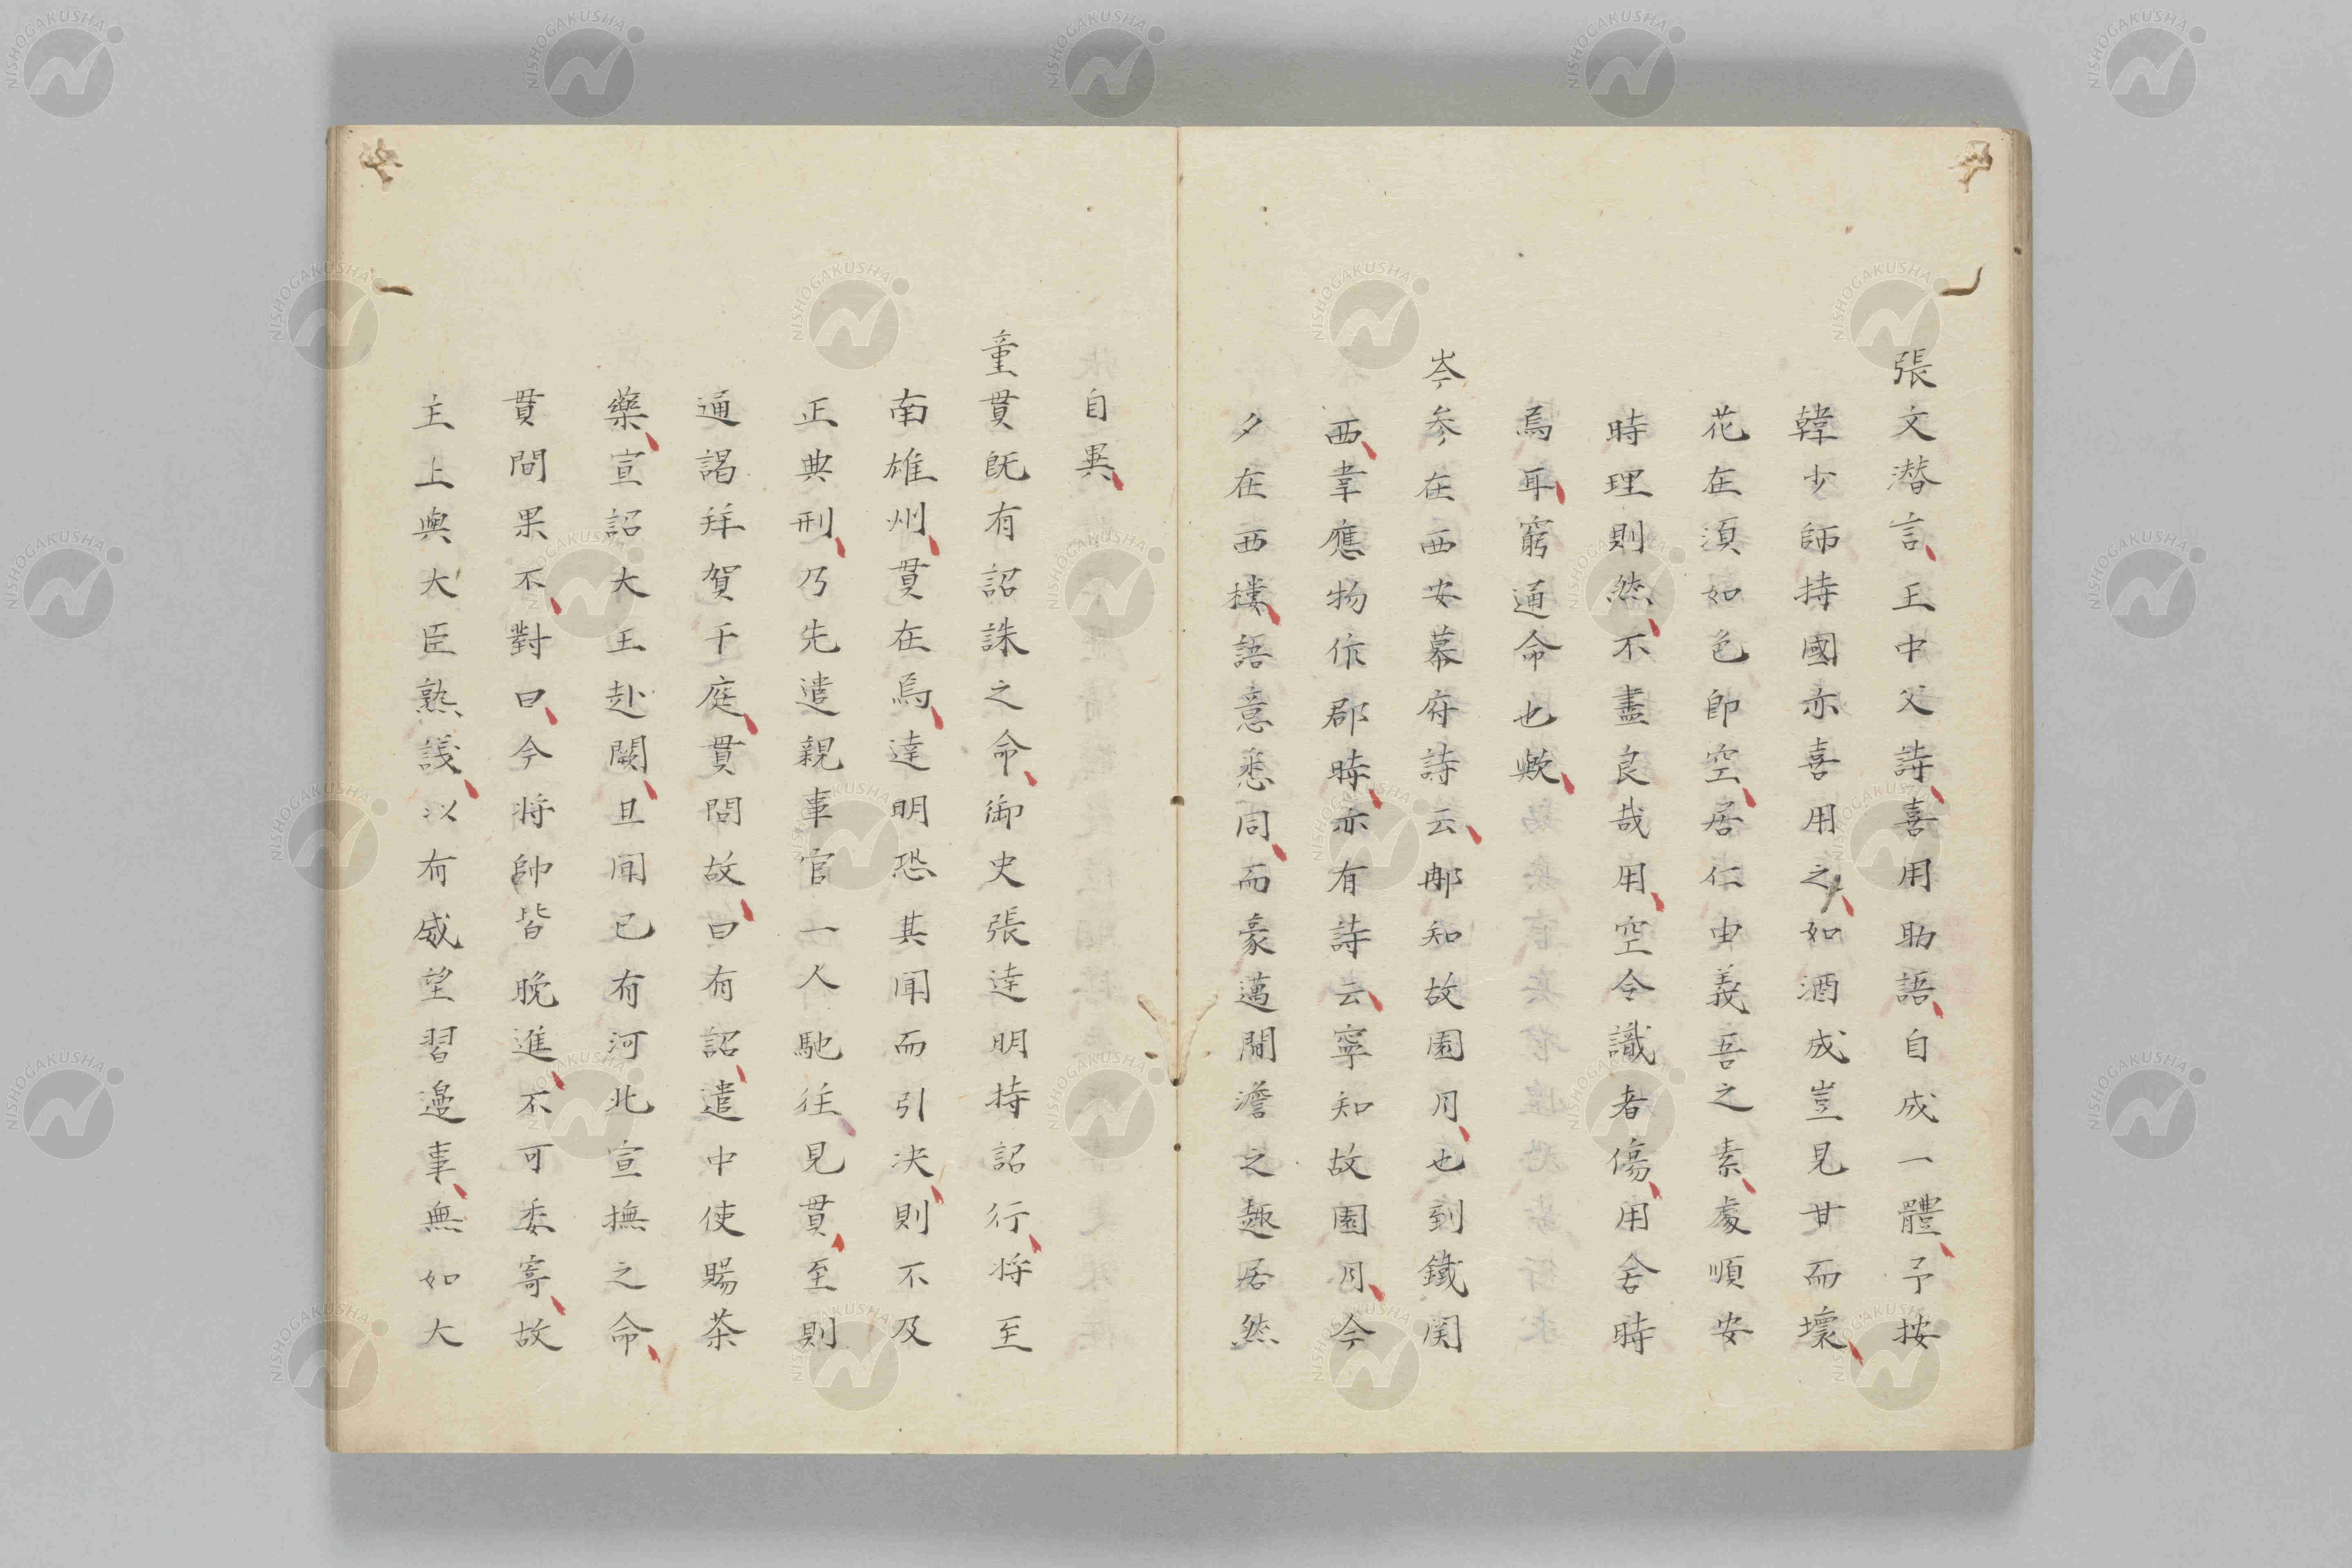 張文潜言王中父詩喜用助語自成一體予按
韓少師持國亦喜用之如酒成豈見甘而壞
花在須如色即空居仁由義吾之素處順安
時理則然不盡良哉用空令識者傷用舍時
焉耳窮通命也歟
岑参在西安幕府詩云那知故園月也到鐵関
西韋應物作郡時亦有詩云寧知故園月今
夕在西樓語意悉同而豪邁閒澹之趣居然
自異
童貫既有詔誅之命御史張達明持詔行将至
南雄州貫在焉達明恐其聞而引决則不及
正典刑乃先遣親事官一人馳往見貫至則
通謁拜賀于庭貫問故曰有詔遣中使賜茶
藥宣詔大王赴闕且聞已有河北宣撫之命
貫問果不對曰今将帥皆晚進不可委寄故
主上與大臣熟議以有威望習邊事無如大
NISHOGAKUSHA